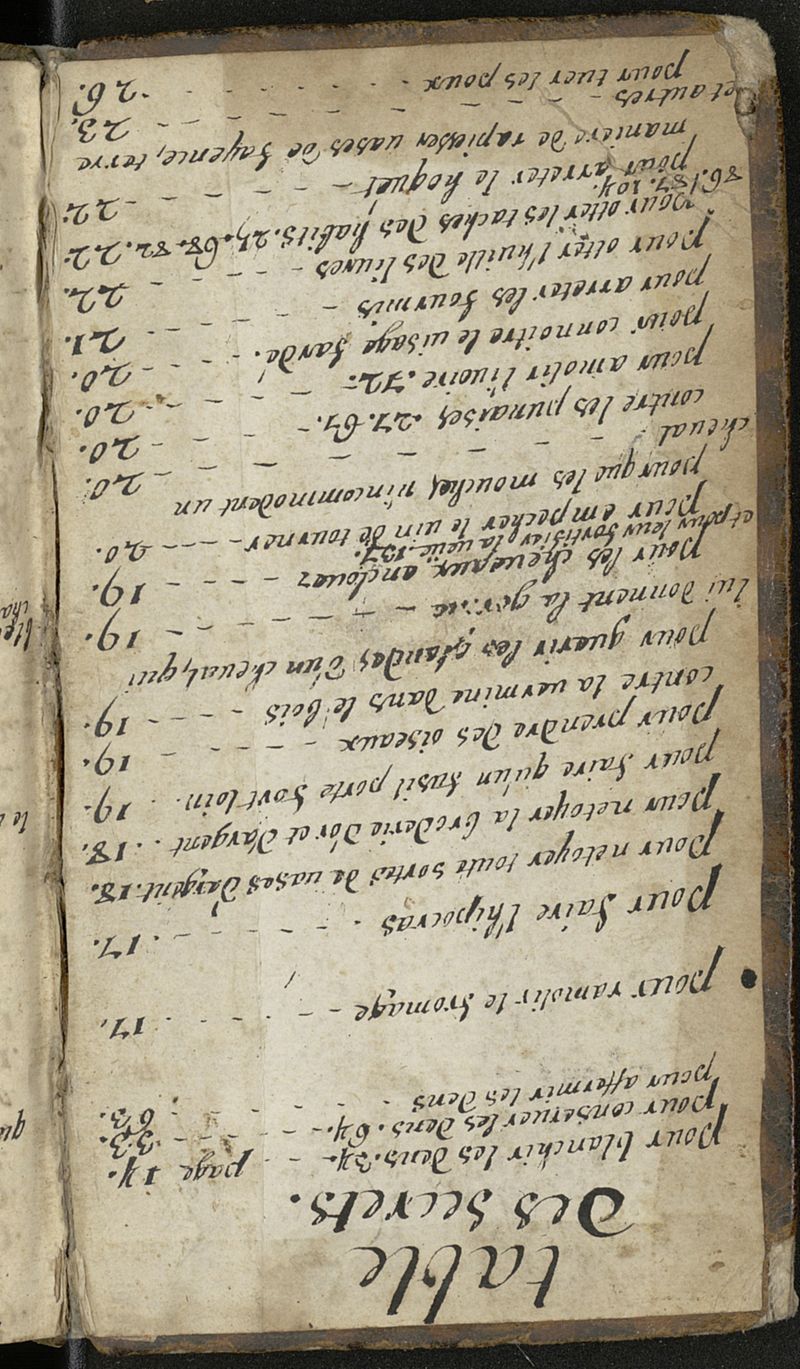 table
Des secrets.
pour blanchir les Dens. 34. - - - page 14.
pour conseruer les Dens. 64. - - - - - 33.
pour affermir les Dens - - - - - 63.
pour ramolir le fromage - - - - - 17.
pour faire l'hipocras - - - - - 17.
pour netoyer toute sortes de uases D'argent. 18.
pour netoyer la broderie D'or et D'argent . . 18.
pour faire qu'un fusil porte fort loin . . 19.
pour prendre des oiseaux - - - - - 19.
contre la uermine Dans le bois - - - - 19.
pour guerir les glandes D'un cheual, qui
lui donnent la - - - - - 19.
pour les cheuaux anclouez - - - - 19.
et pour leur fortifier la ueüe. 137.
pour empecher le uin de tourner - - - - 20.
pour que les mouches n'incommodent un
cheual - - - - - - 20.
contre les punaises. 27. 67. - - - - 20.
pour amolir l'iuoire. 72. - - - - 20.
pour connoitre le uisage fardé. - - - - 20.
pour arreter les fourmis - - - - - 21.
pour otter l'huille Des liures - - - - - 22.
pour otter les taches Des habits. 21. 68. 82. 22.
86. 87. 104.
pour arreter le hoquet - - - - - 22.
maniere de rapiesser uases de fayence, terre
et autres - - - - - - 23.
pour tuer les poux - - - - - 26.